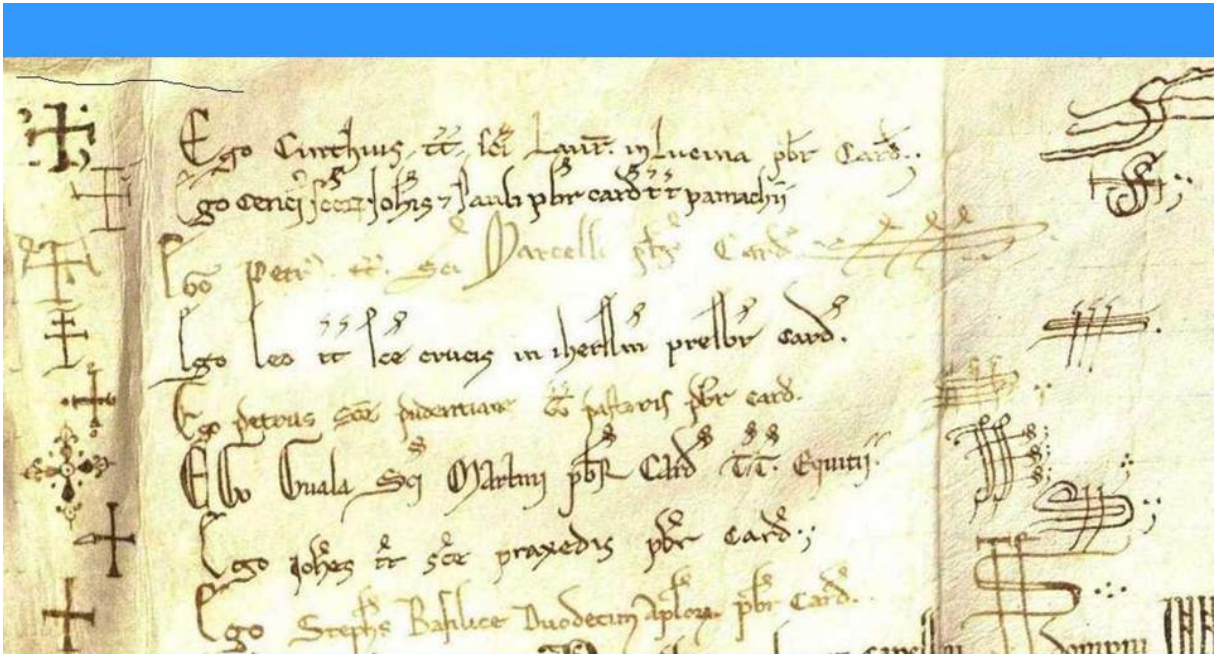 Ego Cinthius tt sci Laur. in Lucina pbr Card.
Ego Cenci Johis 7 Pauli pbr card tt pamachii
Ego Petr tt. Sci Marcelli pbr Card
Ego Leo tt sce crucis in iherlm presbr card.
Ego petrus sce pudentiane tt pastoris pbr card.
Ego Guala Sci Martini pbr Card T.T. Equitii.
Ego Johes tt sce praxedis pbr card.
Ego Stephs Basilice Duodecim Aplor pbr Card.